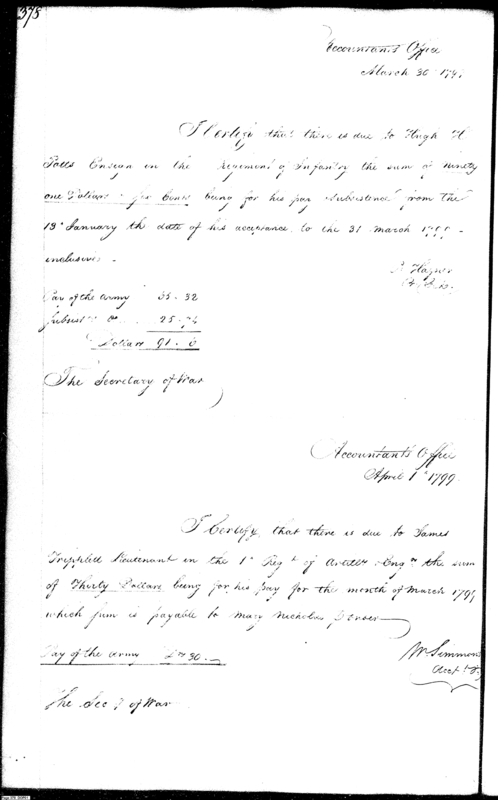 378
Accountants Office
March 30 179
I Certify that there is due to Hugh H
Potts Ensign in the Regiment of Infantry the sum of Ninety
one Dollars Cents being for his pay Subsistence from the
13 January the date of his acceptance to the 31 March 1799
inclusive
Pay of the Army
Subsist 25.
Dollars 91.
The Secretary of War
Accountants Office
April 1st 1799
I Certify that there is due to James
Tripplett Lieutenant in the 1st Regt of Artills Engrs the sum
of Thirty Dollars being for his pay for the month of March 1799
which sum is payable to Mary Nicholas
Pay of the Army 30
W Simmons
Acct
The Secy of War